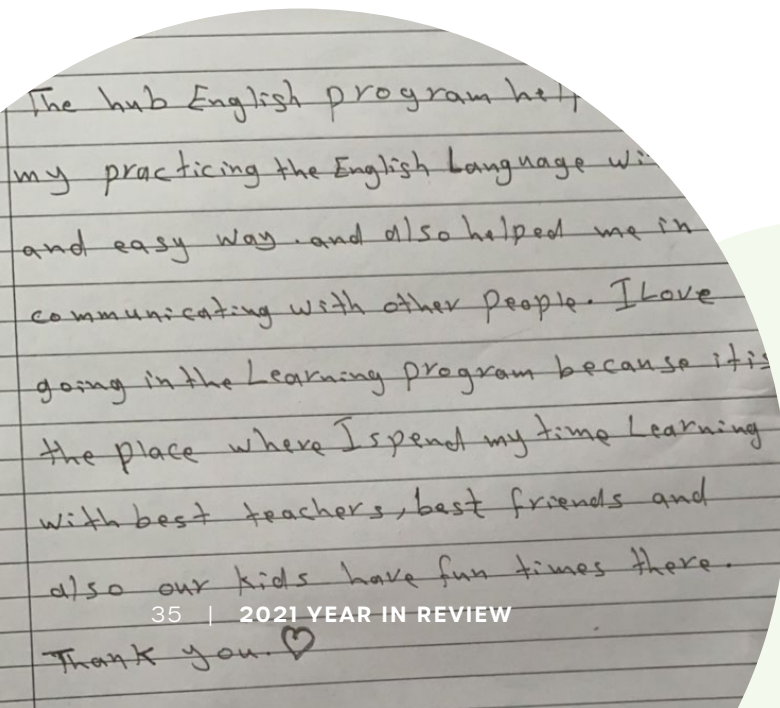 The hub English program
my practicing the English Language
and easy way. and also helped me in
communicating with other people. I Love
going in the Learning program because it is
the place where I spend my time Learning
with best teachers, best friends and
also our kids have fun times there.
35 | 2021 YEAR IN REVIEW
Thank you. ♡